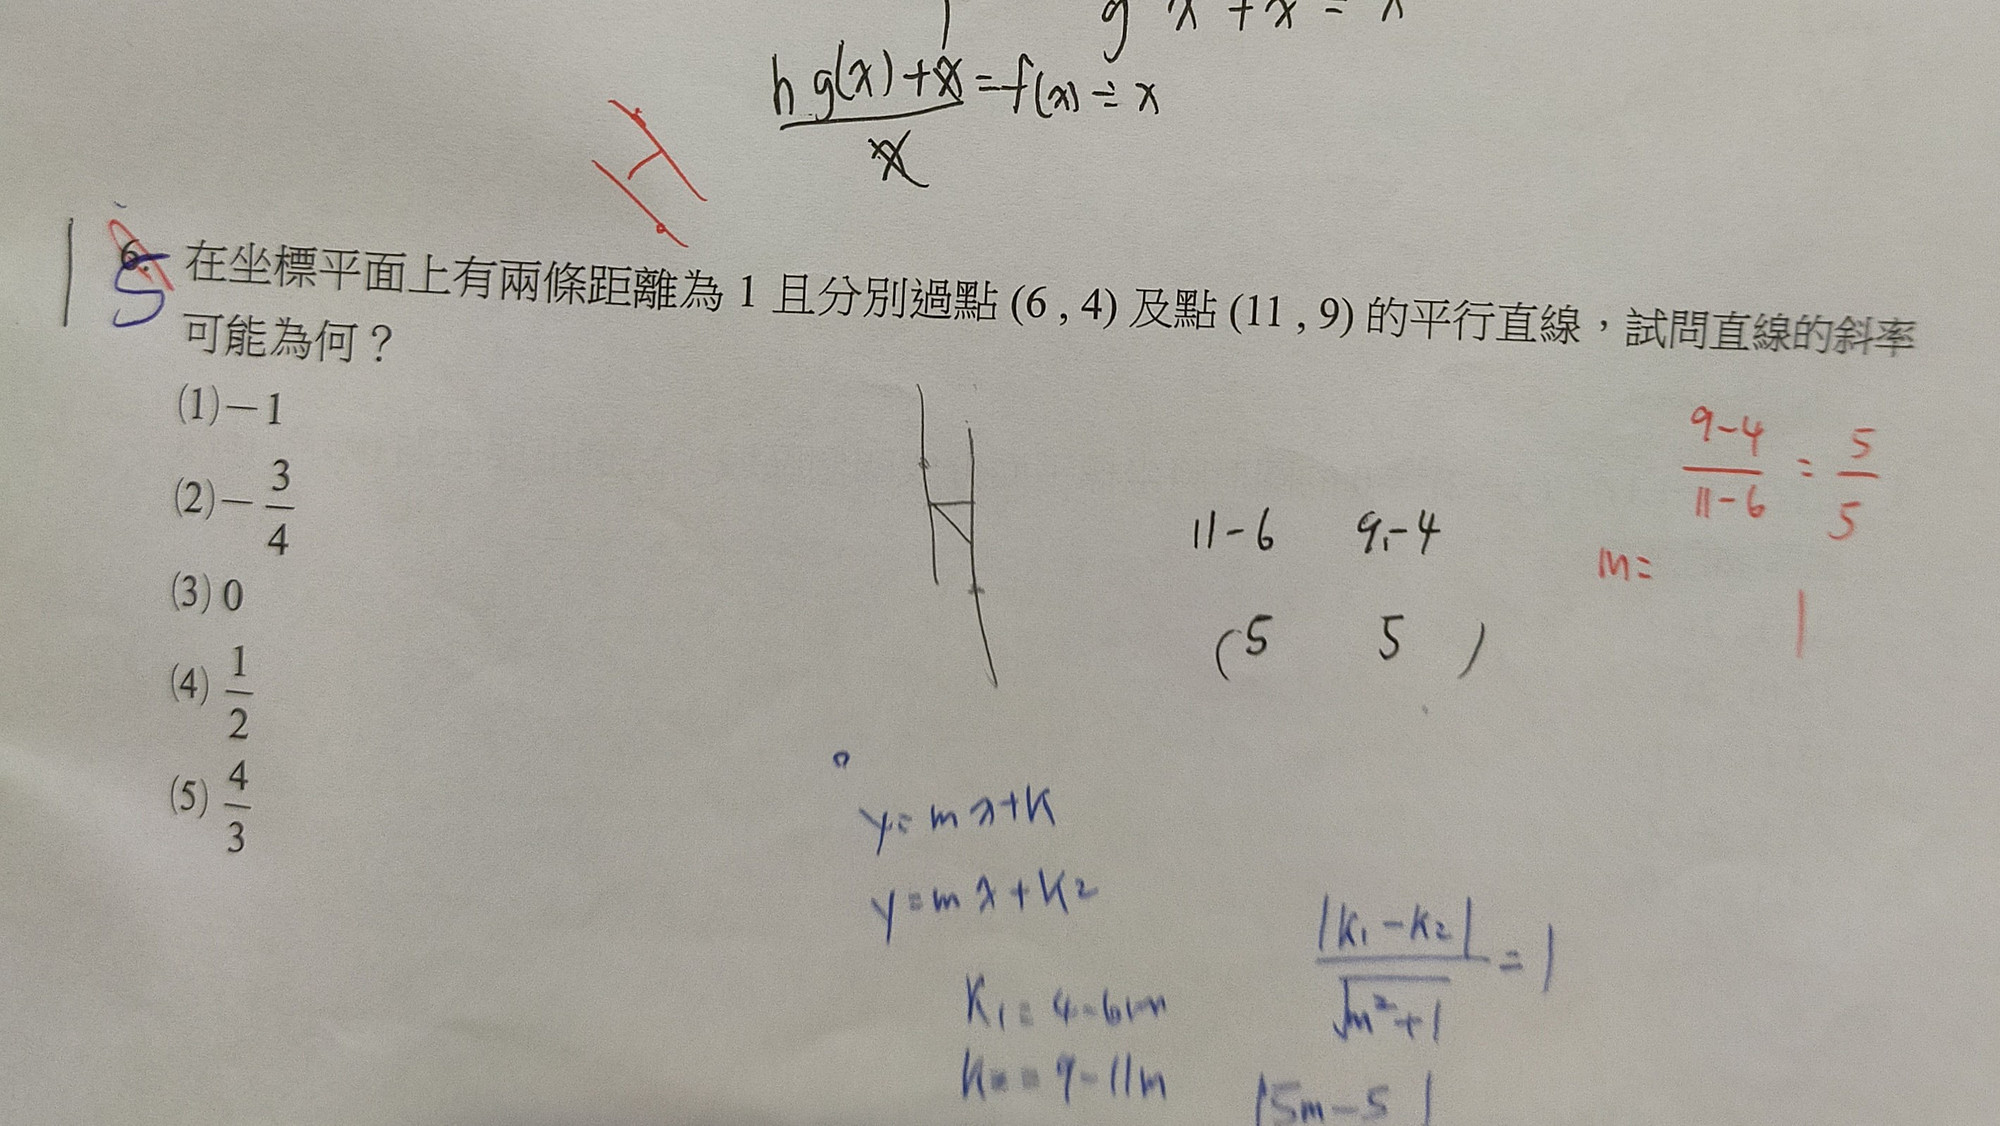 h g(x)+x = f(x) ÷ x
x
6. 在坐標平面上有兩條距離為 1 且分別過點 (6 , 4) 及點 (11 , 9) 的平行直線，試問直線的斜率
5
可能為何？
(1) −1
(2) − 3/4
(3) 0
(4) 1/2
(5) 4/3
9-4/11-6 = 5/5
m=
1
11-6 9-4
(5 5)
y=mx+k
y=mx+k2
|k1-k2|/√m²+1 = 1
k1=4-6m
=9-11m
|5m-5|